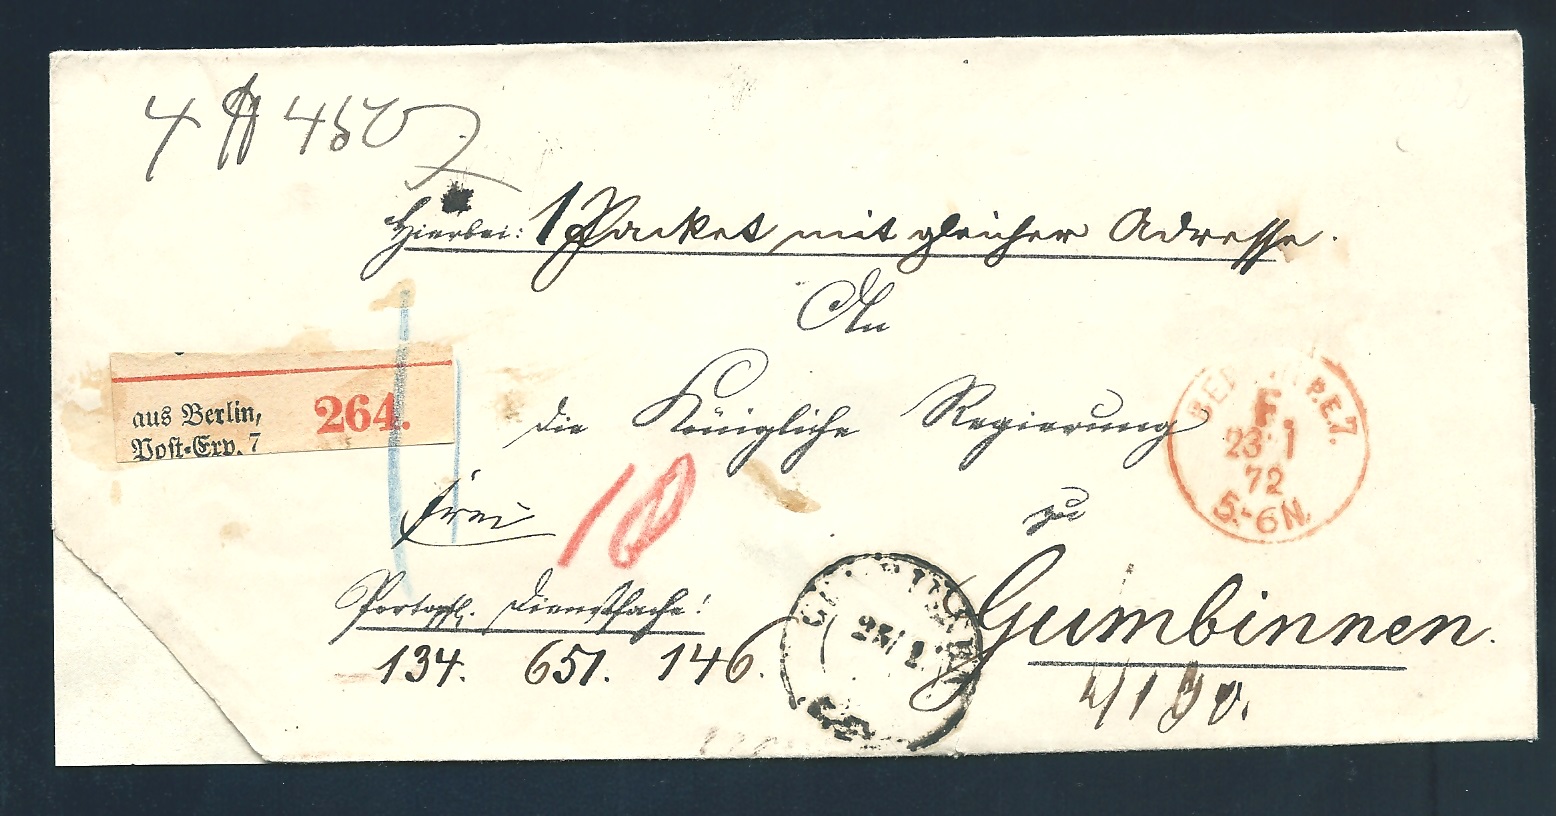 4 ℔ 450
Hierbei: 1 Packet mit gleicher Adresse.
An
die Königliche Regierung
zu
Gumbinnen
aus Berlin,
Post-Exp. 7
264.
frei
10
Portopfl. Dienstsache!
134. 651. 146.
BERLIN P.E.7.
F.
23 1
72
5-6N.